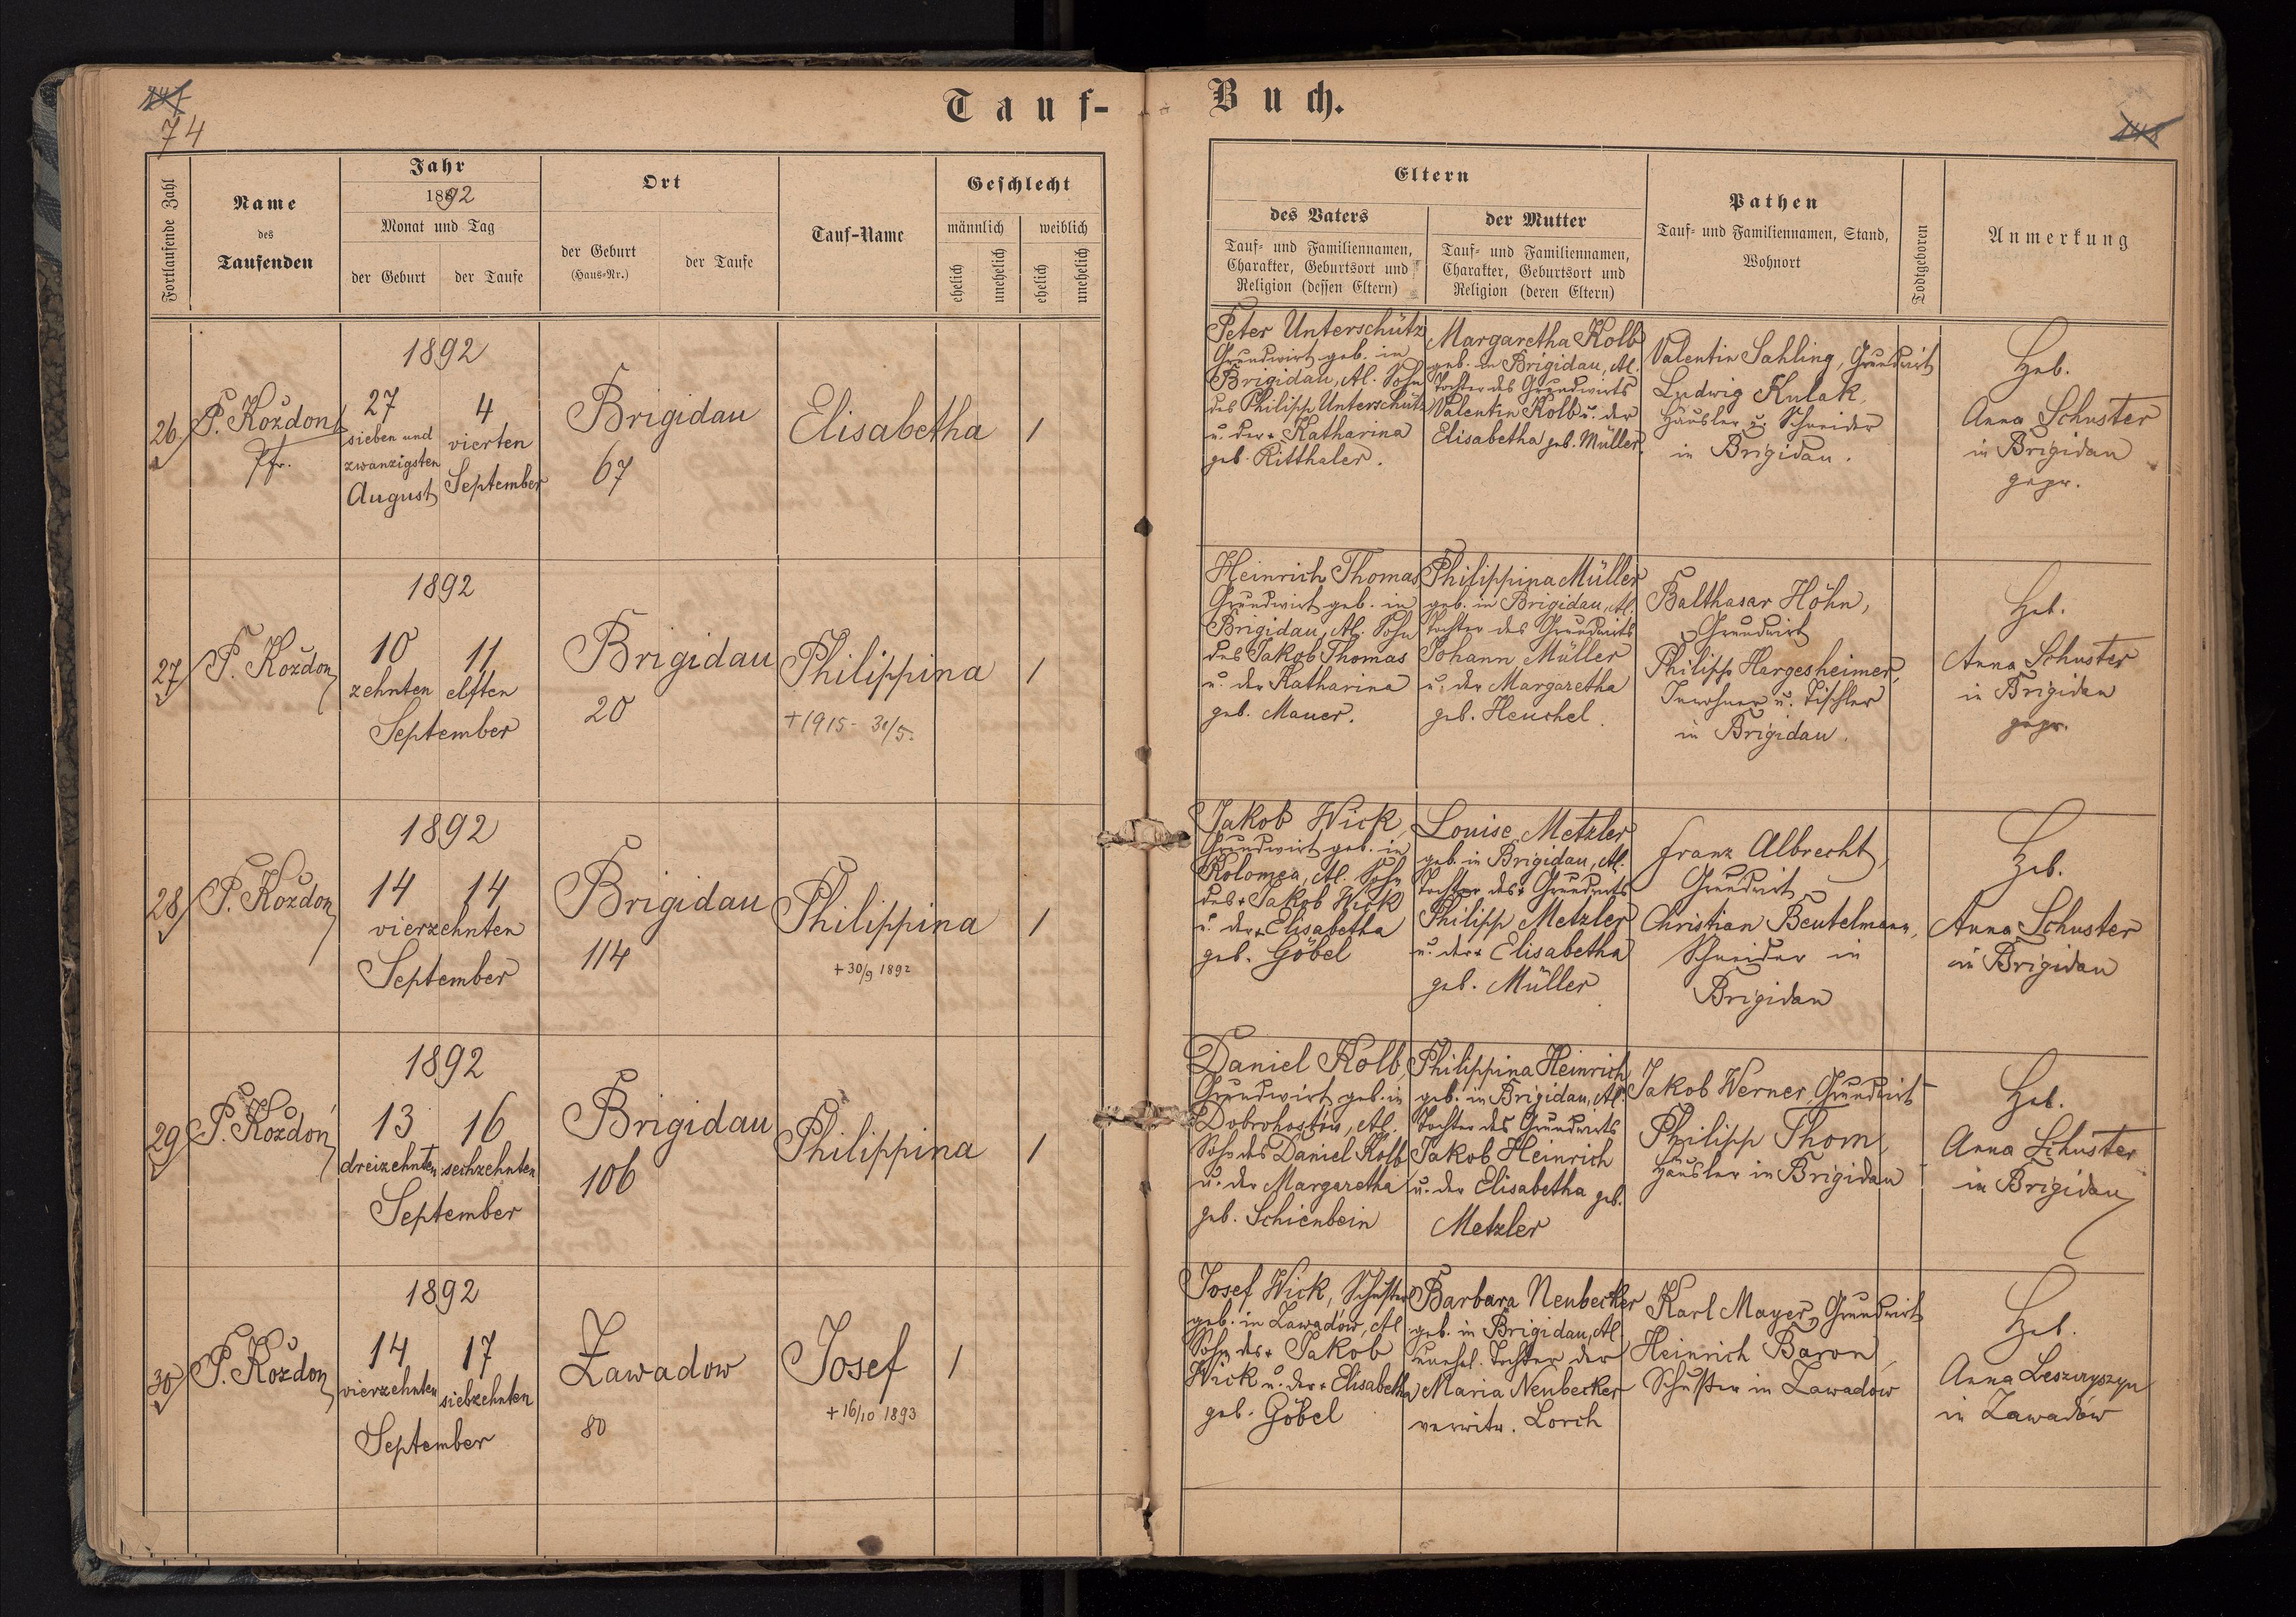 74
Tauf-
Buch.
Fortlaufende Zahl
Name
des
Taufenden
Jahr
1892
Monat und Tag
der Geburt
der Taufe
Ort
der Geburt
(Haus-Nr.)
der Taufe
Tauf-Name
Geschlecht
männlich
weiblich
ehelich
unehelich
ehelich
unehelich
Eltern
des Vaters
Tauf- und Familiennamen,
Charakter, Geburtsort und
Religion (dessen Eltern)
der Mutter
Tauf- und Familiennamen,
Charakter, Geburtsort und
Religion (deren Eltern)
Pathen
Tauf- und Familiennamen, Stand,
Wohnort
Todtgeboren
Anmerkung
26.
P. Koždoň
Pfr.
1892
27
sieben und
zwanzigsten
August
4
vierten
September
Brigidau
67
Elisabetha
1
Peter Unterschütz
Grundwirt geb. in
Brigidau, Al. Sohn
des Philipp Unterschütz
u. der + Katharina
geb. Ritthaler.
Margaretha Kolb
geb. in Brigidau, Al.
Tochter des Grundwirts
Valentin Kolb u. der
Elisabetha geb. Müller.
Valentin Sahling, Grundwirt
Ludwig Kulak,
Häusler u. Schneider
in Brigidau.
Heb.
Anna Schuster
in Brigidau
gepr.
27
P. Koždoň
1892
10
zehnten
11
elften
September
Brigidau
20
Philippina
+ 1915 - 31/5.
1
Heinrich Thomas
Grundwirt geb. in
Brigidau, Al. Sohn
des Jakob Thomas
u. der Katharina
geb. Mauer.
Philippina Müller
geb. in Brigidau, Al.
Tochter des Grundwirts
Johann Müller
u. der Margaretha
geb. Heuchel.
Balthasar Höhn,
Grundwirt
Philipp Hargesheimer,
Inwohner u. Tischler
in Brigidau.
Heb.
Anna Schuster
in Brigidau
gepr.
28
P. Koždoň
1892
14
14
vierzehnten
September
Brigidau
114
Philippina
+ 30/9 1892
1
Jakob Wick
Grundwirt geb. in
Kolomea, Al. Sohn
des + Jakob Wick
u. der + Elisabetha
geb. Göbel
Louise Metzler
geb. in Brigidau, Al.
Tochter des + Grundwirts
Philipp Metzler
u. der + Elisabetha
geb. Müller
Franz Albrecht,
Grundwirt
Christian Beutelmann,
Schneider in
Brigidau
Heb.
Anna Schuster
in Brigidau
29
P. Koždoň
1892
13
dreizehnten
16
sechzehnten
September
Brigidau
106
Philippina
1
Daniel Kolb,
Grundwirt geb. in
Dobrohostów, Al.
Sohn des Daniel Kolb
u. der Margaretha
geb. Schienbein
Philippina Heinrich
geb. in Brigidau, Al.
Tochter des Grundwirts
Jakob Heinrich
u. der Elisabetha geb.
Metzler
Jakob Werner, Grundwirt
Philipp Thom,
Häusler in Brigidau
Heb.
Anna Schuster
in Brigidau
30
P. Koždoň
1892
14
vierzehnten
17
siebzehnten
September
Zawadow
80
Josef
+ 16/10 1893
1
Josef Wick, Schuster
geb. in Zawadów, Al
Sohn des + Jakob
Wick u. der + Elisabetha
geb. Göbel
Barbara Neubecker
geb. in Brigidau, Al.
unehel. Tochter der
Maria Neubecker
verwitw. Lorch
Karl Mayer, Grundwirt
Heinrich Baron,
Schuster in Zawadów
Heb.
Anna Leszczyszyn
in Zawadów